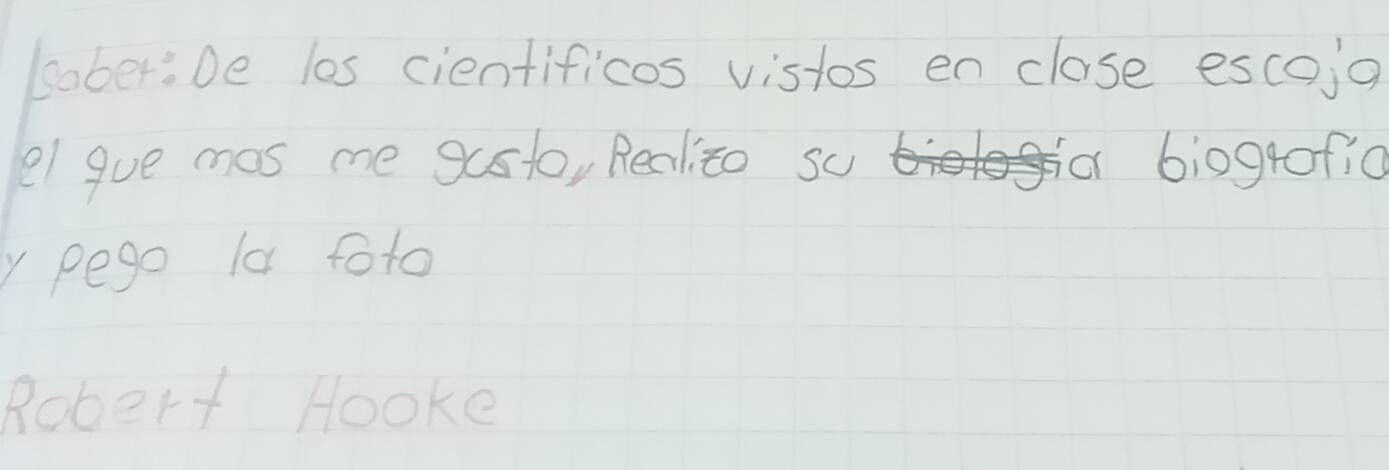 saber: De los cientificos vistos en clase escojo
el que mas me gusto, Realizo su biologia biografia
y pego la foto
Robert Hooke